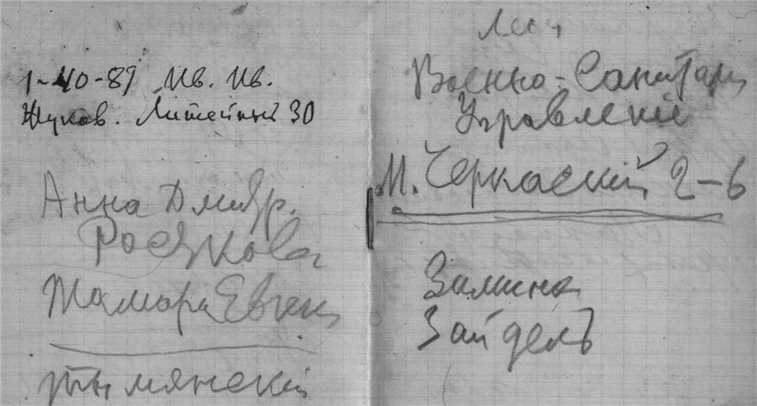 1-40-89 Ив. Ив.
Жуков. Литейный 30
Анна Дмитр.
Тамара Евген
Военно-Санитарн
Управление
М. Черкасский 2-6
Зимина
Зайдель